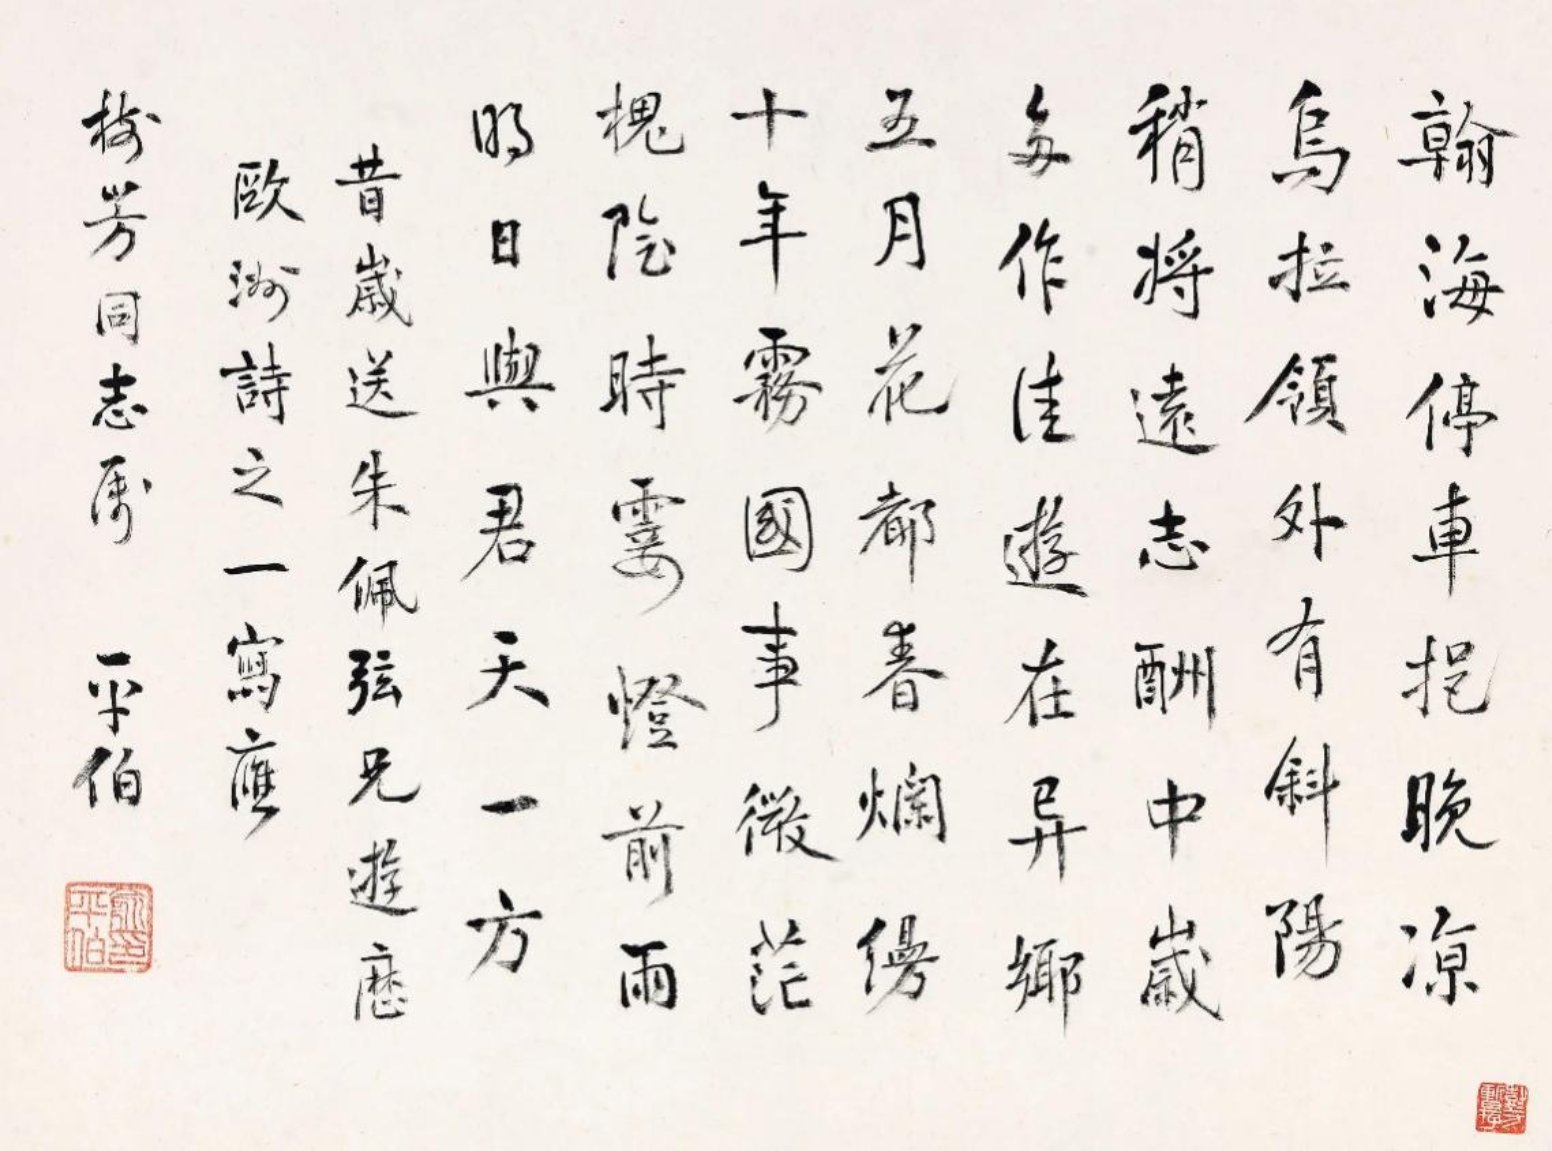 翰海停車挹晚涼
烏拉領外有斜陽
稍將遠志酬中歲
多作佳遊在异鄉
五月花都春爛縵
十年霧國事微茫
槐陰時霎燈前雨
明日與君天一方
昔歲送朱佩弦兄遊歷
歐洲詩之一寫應
梅芳同志属
平伯
俞
平伯